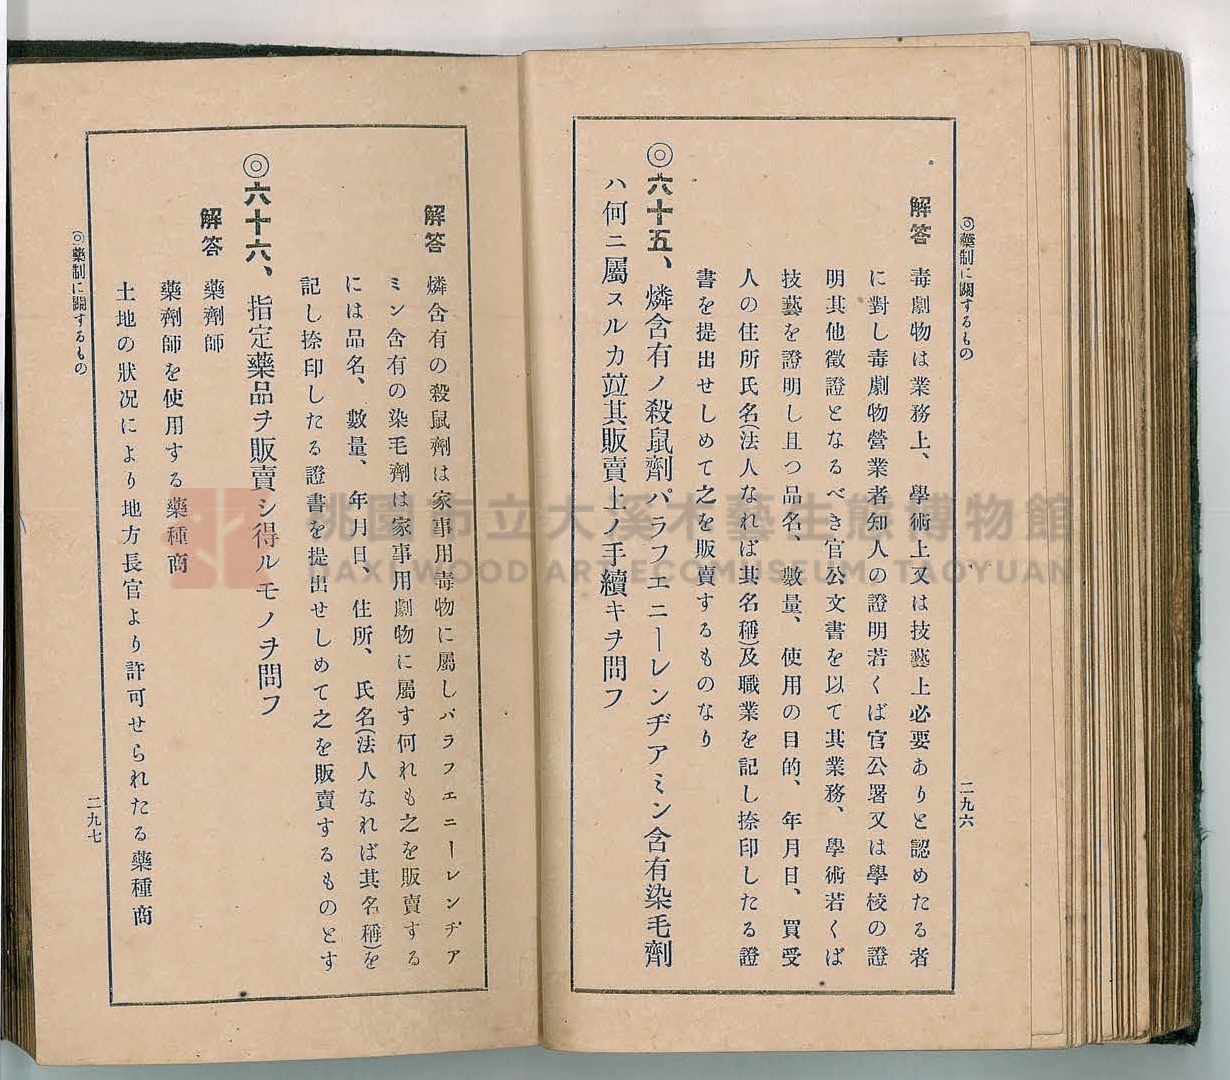 ◎藥制に關するもの
二九六
解答 毒劇物は業務上、學術上又は技藝上必要ありと認めたる者
に對し毒劇物營業者知人の證明若くば官公署又は學校の證
明其他徵證となるべき官公文書を以て其業務、學術若くば
技藝を證明し且つ品名、數量、使用の目的、年月日、買受
人の住所氏名(法人なれば其名稱)及職業を記し捺印したる證
書を提出せしめて之を販賣するものなり
◎六十五、燐含有ノ殺鼠劑パラフエニーレンヂアミン含有染毛劑
ハ何ニ屬スルカ竝其販賣上ノ手續キヲ問フ
解答 燐含有の殺鼠劑は家事用毒物に屬しパラフエニーレンヂア
ミン含有の染毛劑は家事用劇物に屬す何れも之を販賣する
には品名、數量、年月日、住所、氏名(法人なれば其名稱)を
記し捺印したる證書を提出せしめて之を販賣するものとす
◎六十六、指定藥品ヲ販賣シ得ルモノヲ問フ
解答 藥劑師
藥劑師を使用する藥種商
土地の狀況により地方長官より許可せられたる藥種商
◎藥制に關するもの
二九七
桃園市立大溪木藝生態博物館
DAXI WOOD ART ECOMUSEUM, TAOYUAN